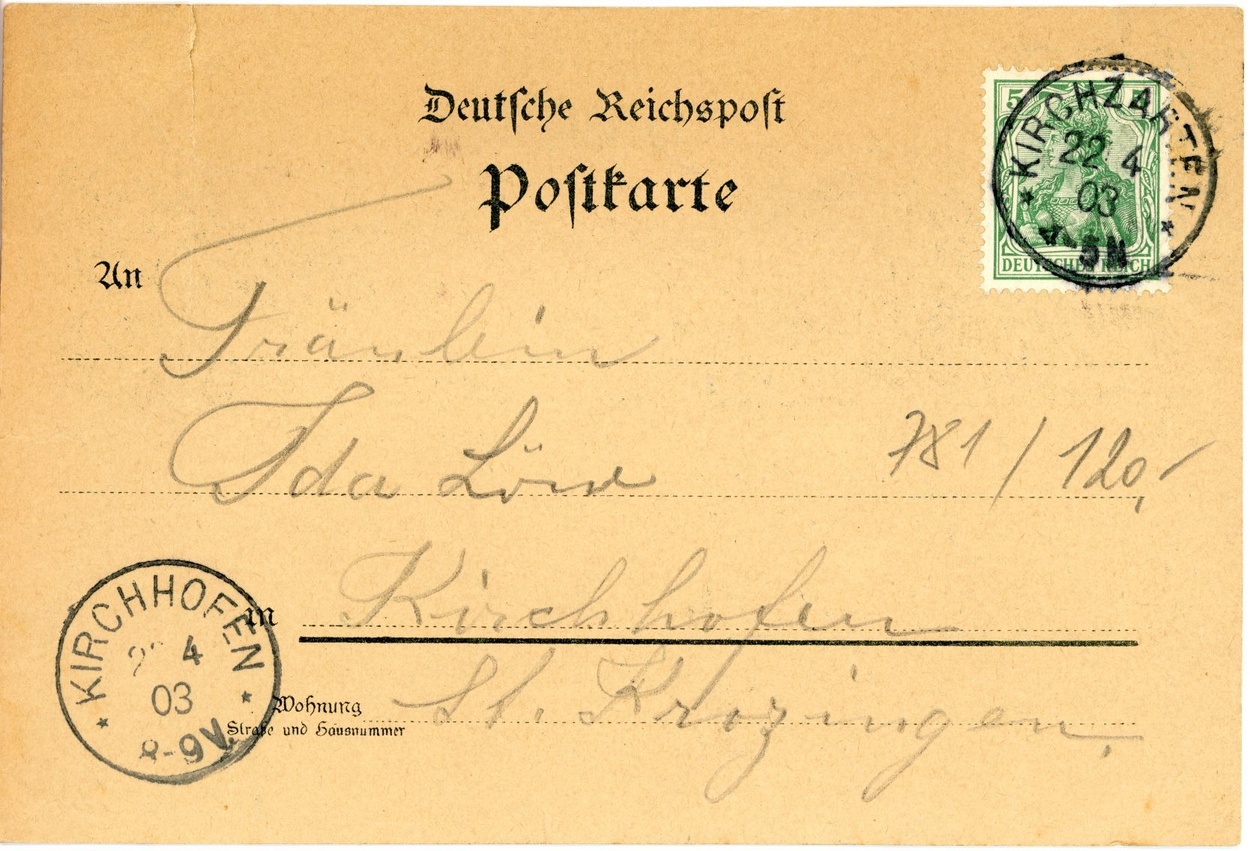 Deutsche Reichspost
Postkarte
5
KIRCHZARTEN
22 4
03
4-5N
DEUTSCHES REICH
An
Fräulein
Ida
781 / 120,-
in Kirchhofen
St. Krozingen.
Wohnung
Straße und Hausnummer
KIRCHHOFEN
4
03
8-9V.